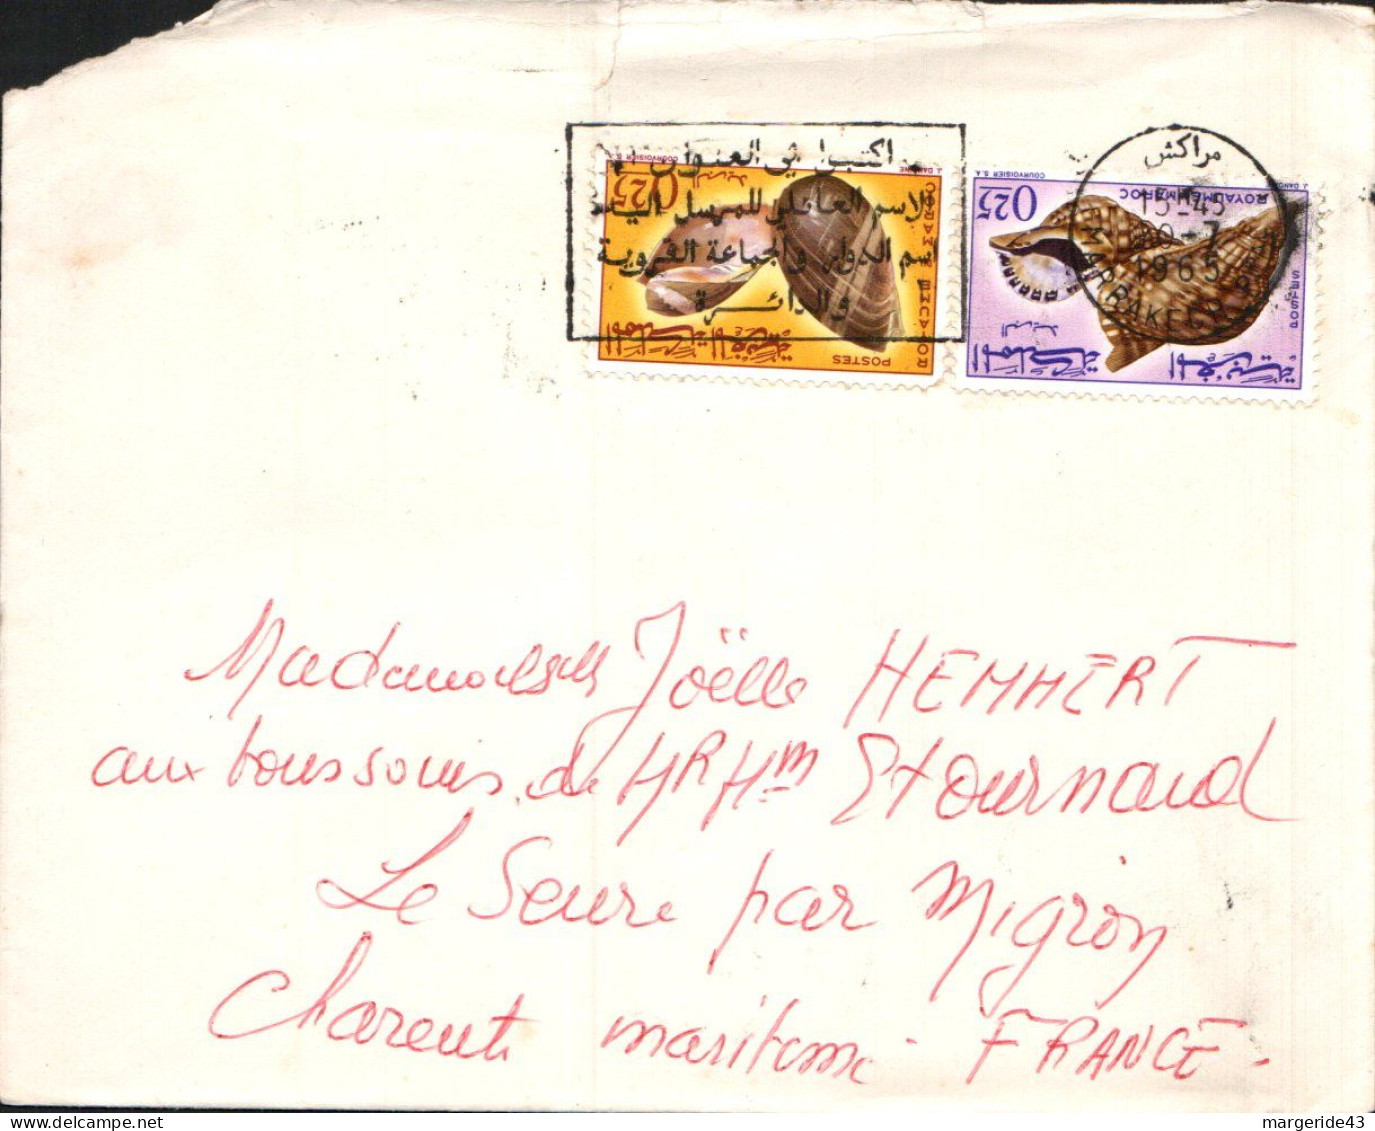 اكتبوا في العنوان
الاسم العائلي للمرسل اليه
اسم الدوار والجماعة القروية
والدائرة
مراكش
15H45
20-7
1965
MARRAKECH
COURVOISIER S.A
J. DANDINE
0.25
البريد
ROYAUME DU MAROC
POSTES
المملكة المغربية
COURVOISIER S.A
0.25
البريد
ROYAUME DU MAROC
POSTES
المملكة المغربية
Mademoiselle Joëlle HEMMERT
aux bons soins de MR Mm Etournaud
Le Seure par Migron
Charente maritime. FRANCE.
margeride43